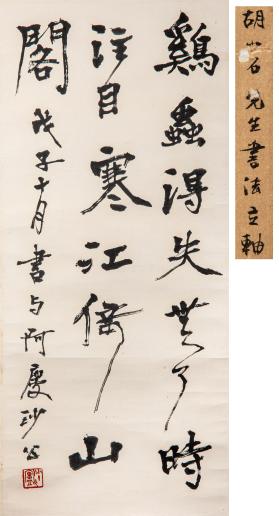 鷄蟲得失无了時
注目寒江倚山
閣 戊子十月書与阿慶 沙公
胡小石先生書法立軸